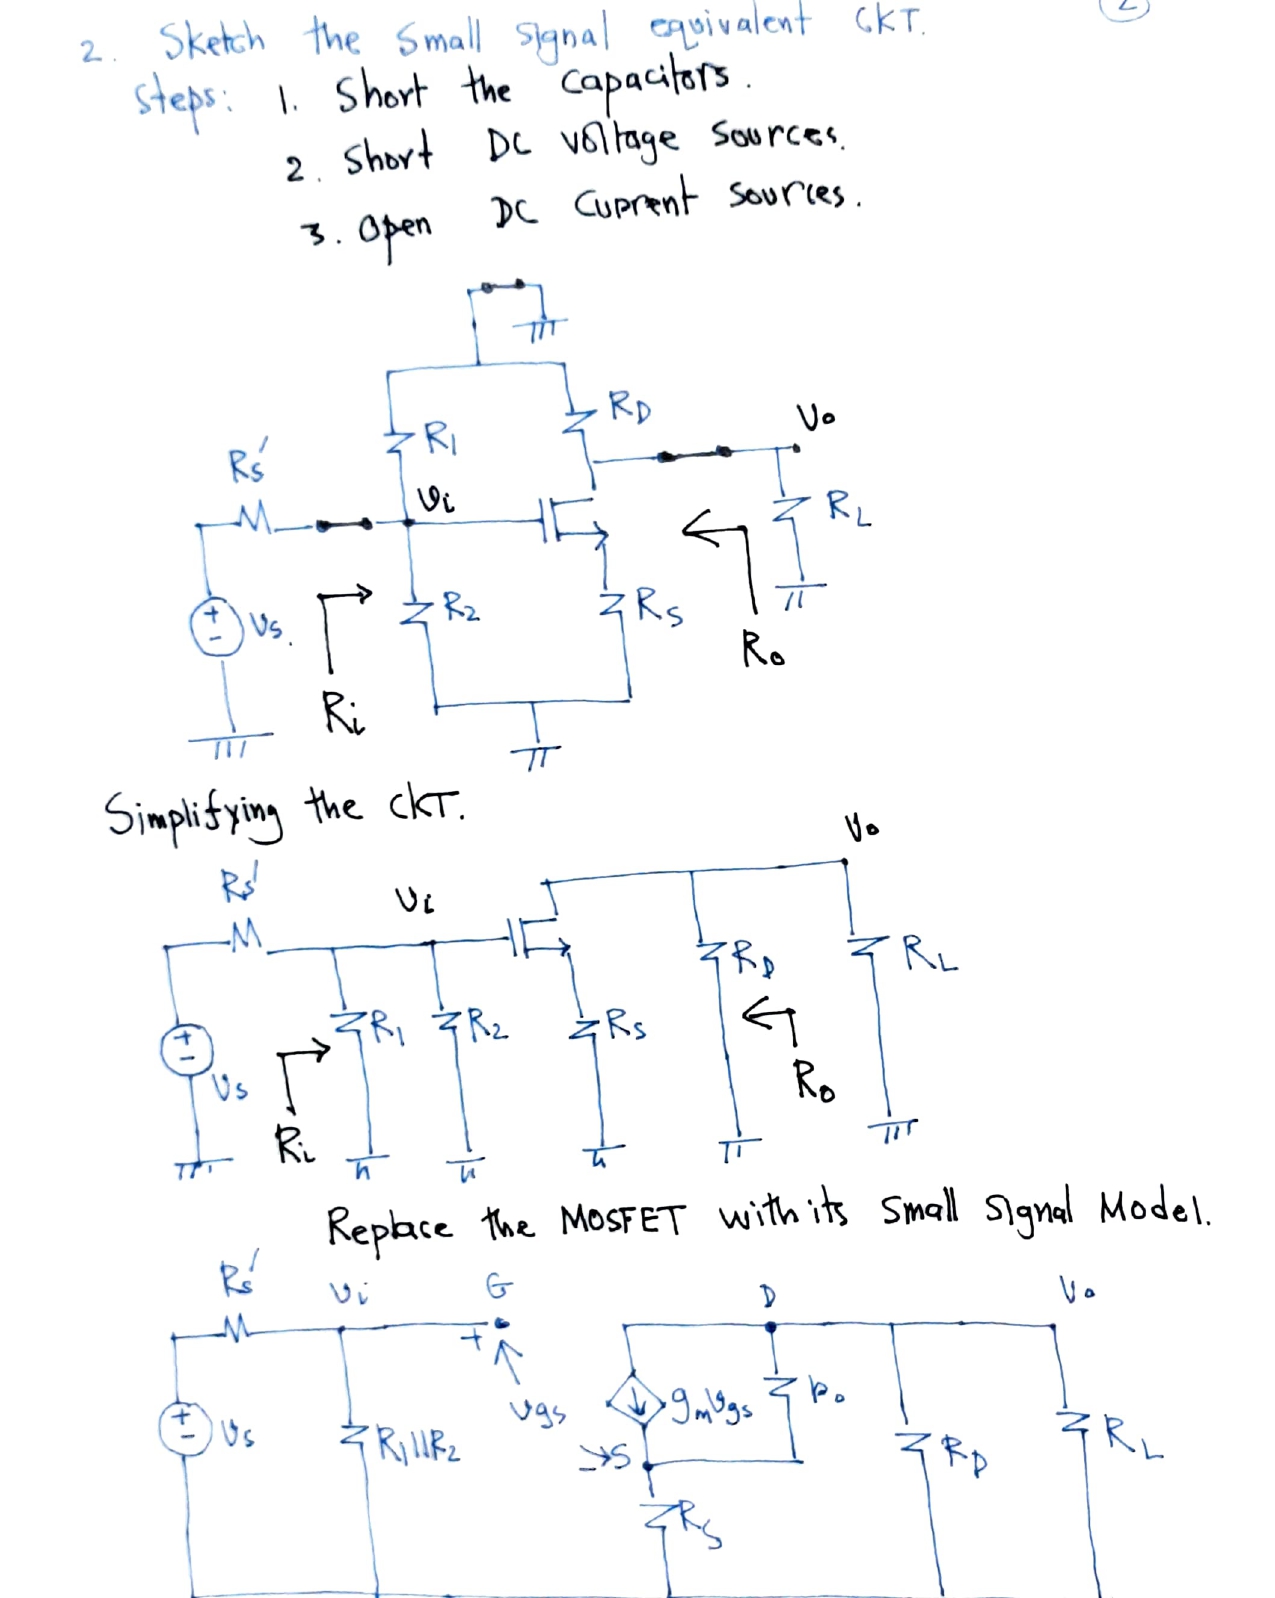 2
2. Sketch the Small Signal equivalent CKT.
Steps: 1. Short the Capacitors.
2. Short DC voltage Sources.
3. Open DC Current Sources.
RD
Vo
R1
Rs'
Vi
RL
Vs.
R2
RS
Ro
Ri
Simplifying the CKT.
Vo
Rs'
Vi
RD
RL
R1
R2
RS
Vs
Ro
Ri
Replace the MOSFET with its Small Signal Model.
Rs'
Vi
G
D
Vo
+
Vgs
gmVgs
ro
Vs
R1||R2
S
RD
RL
RS